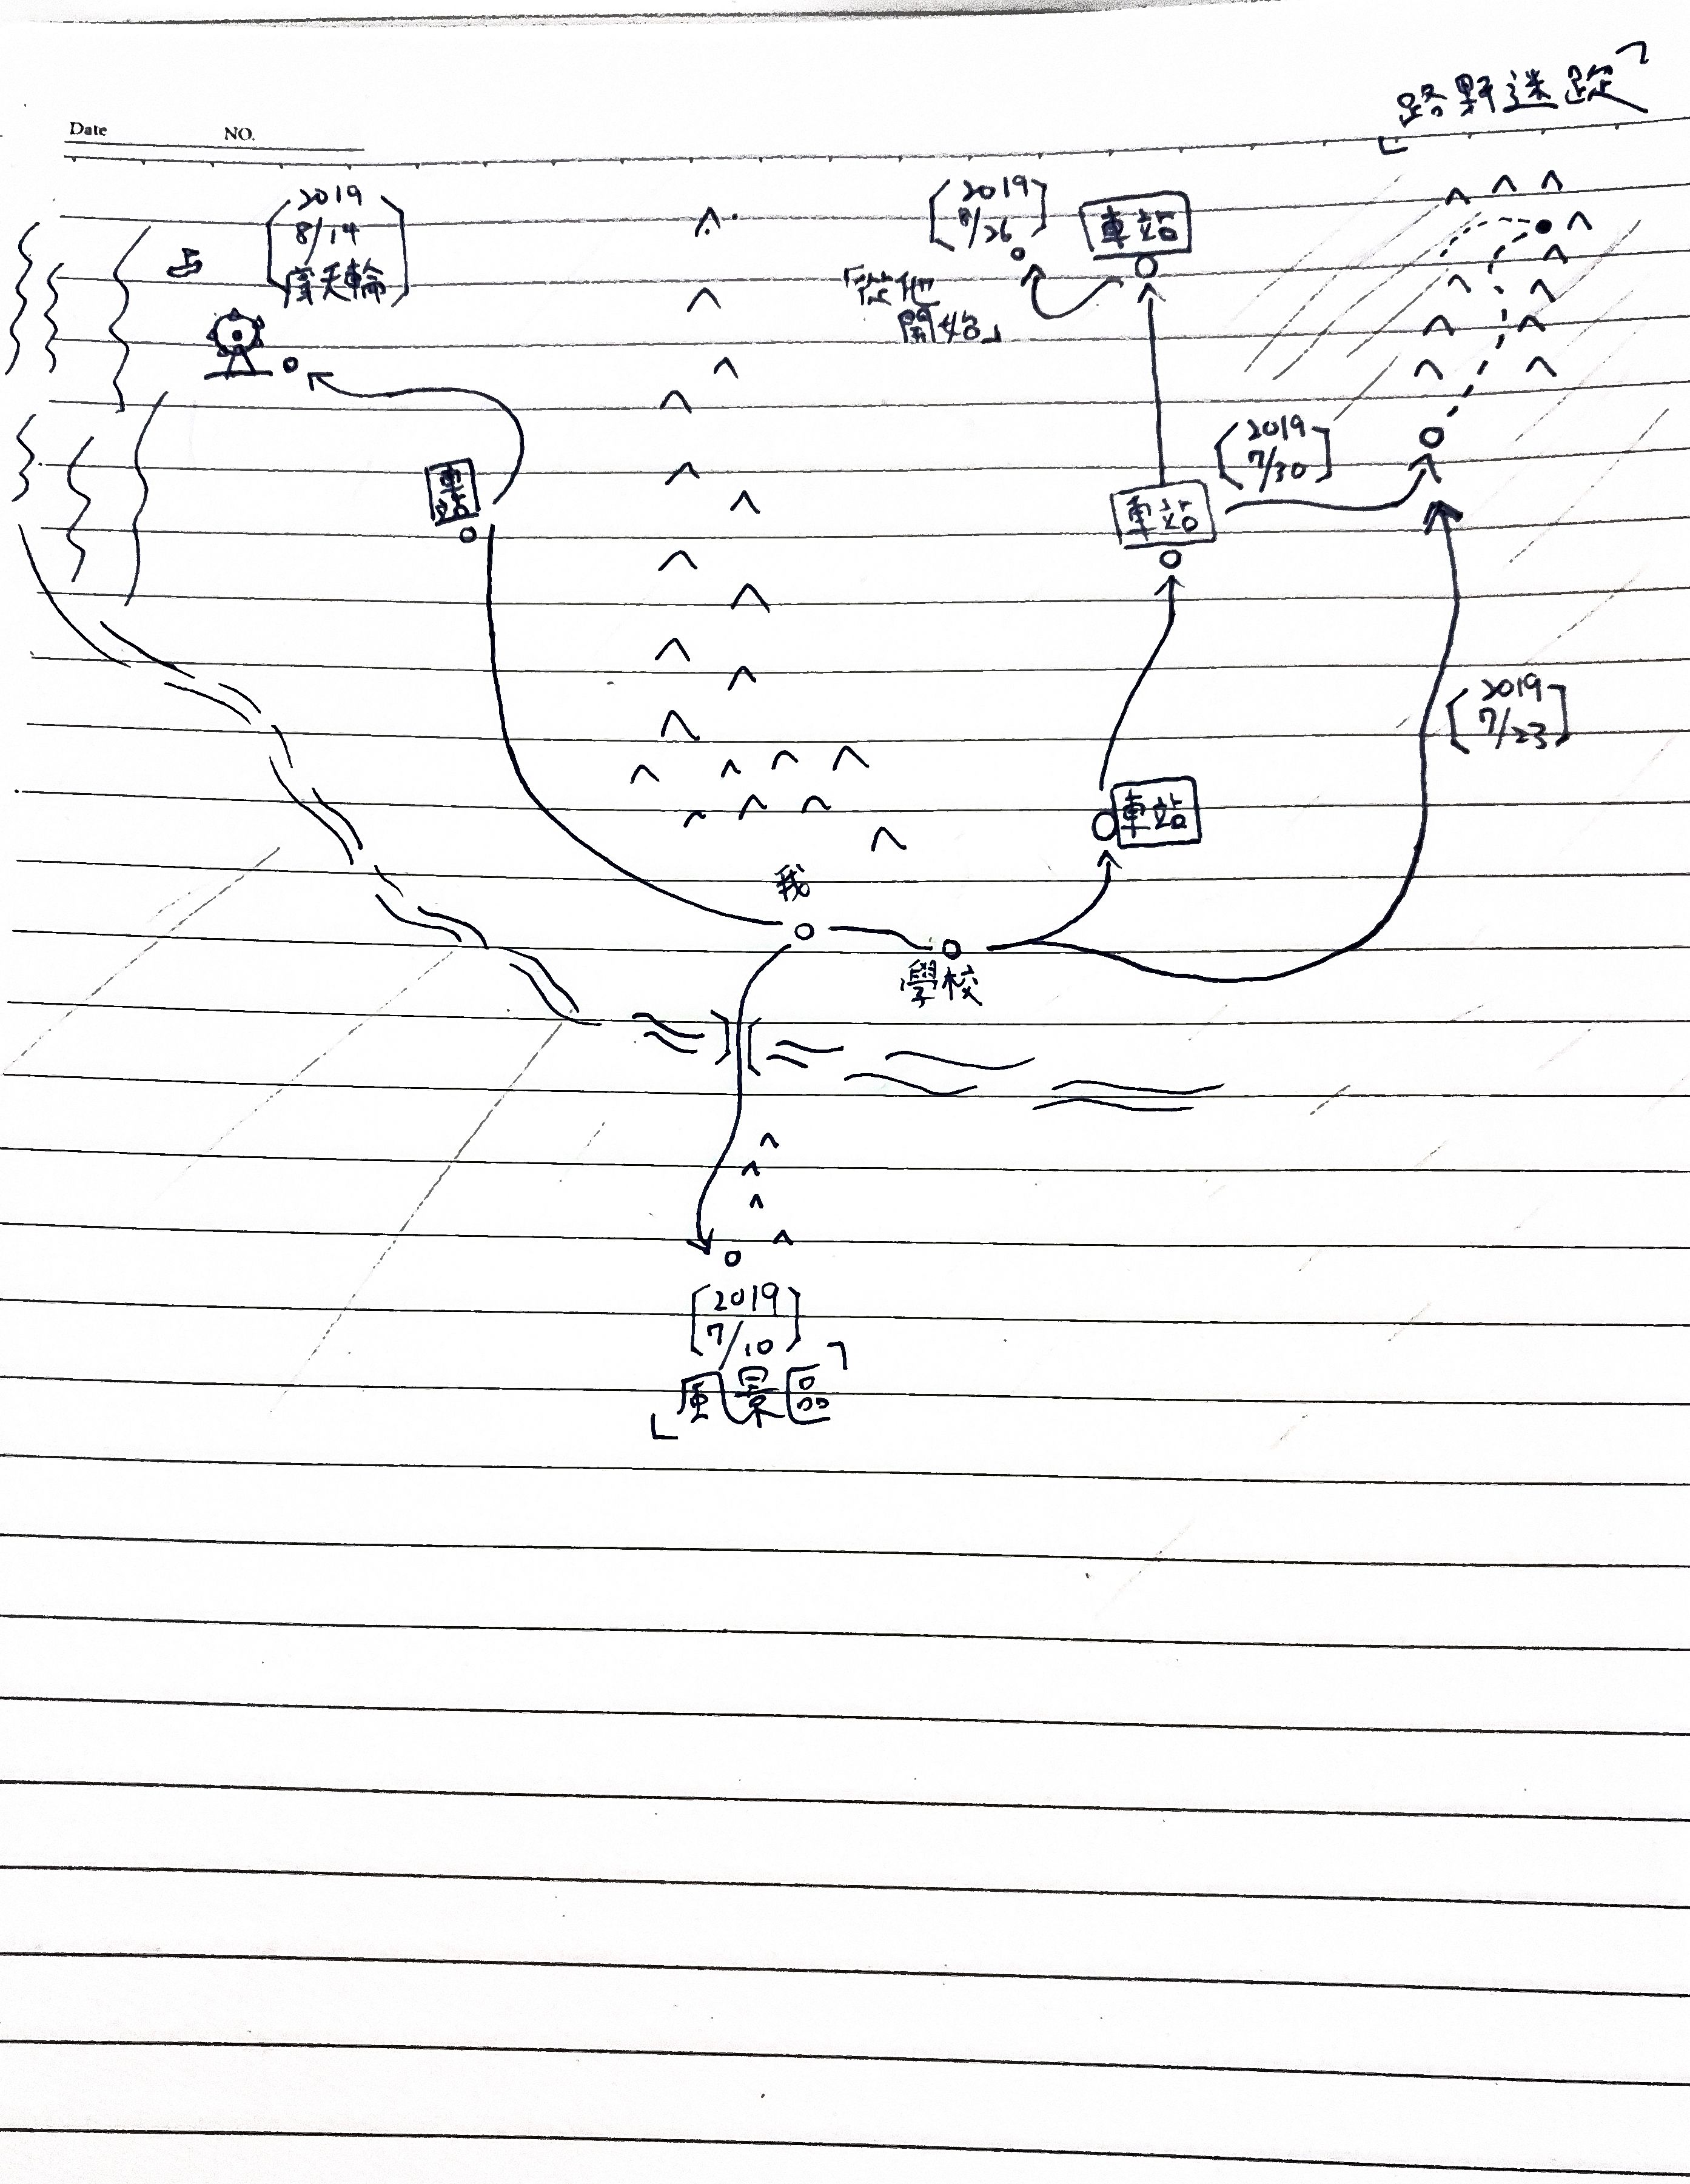 「路野迷蹤」
Date NO.
[2019
8/14
摩天輪]
[2019
8/26]
車站
「從他
開始」
[2019
7/30]
車站
車站
[2019
7/23]
車站
我
學校
[2019
7/10]
「風景區」